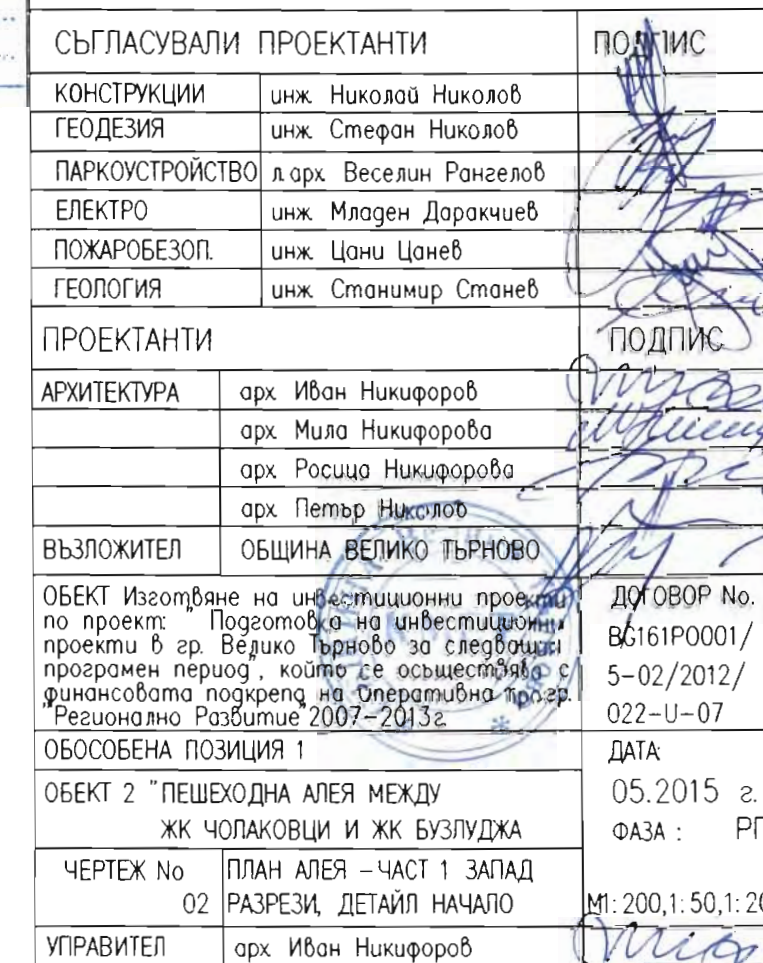 СЪГЛАСУВАЛИ ПРОЕКТАНТИ ПОДПИС
КОНСТРУКЦИИ инж. Николай Николов
ГЕОДЕЗИЯ инж. Стефан Николов
ПАРКОУСТРОЙСТВО л.арх. Веселин Рангелов
ЕЛЕКТРО инж. Младен Даракчиев
ПОЖАРОБЕЗОП. инж. Цани Цанев
ГЕОЛОГИЯ инж. Станимир Станев
ПРОЕКТАНТИ ПОДПИС
АРХИТЕКТУРА арх. Иван Никифоров
арх. Мила Никифорова
арх. Росица Никифорова
арх. Петър Николов
ВЪЗЛОЖИТЕЛ ОБЩИНА ВЕЛИКО ТЪРНОВО
ОБЕКТ Изготвяне на инвестиционни проекти
по проект: " Подготовка на инвестиционни
проекти в гр. Велико Търново за следващия
програмен период", който се осъществява с
финансовата подкрепа на Оперативна прогр.
"Регионално Развитие"2007-2013г.
ДОГОВОР No.
BG161PO001/
5-02/2012/
022-U-07
ОБОСОБЕНА ПОЗИЦИЯ 1
ДАТА:
ОБЕКТ 2 "ПЕШЕХОДНА АЛЕЯ МЕЖДУ
ЖК ЧОЛАКОВЦИ И ЖК БУЗЛУДЖА
05.2015 г.
ФАЗА : РП
ЧЕРТЕЖ No
02
ПЛАН АЛЕЯ -ЧАСТ 1 ЗАПАД
РАЗРЕЗИ, ДЕТАЙЛ НАЧАЛО
М1:200,1:50,1:20
УПРАВИТЕЛ арх. Иван Никифоров